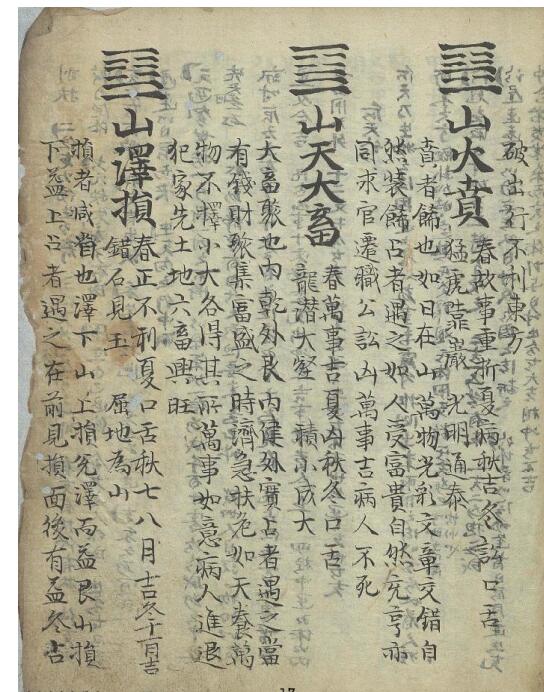 破出行不利東方
山火賁
春故事重折夏病秋吉冬訟口舌
猛虎靠巖 光明通泰
賁者飾也如日在山萬物光彩文章交錯自
然裝飾占者遇之如人受富貴自然亮亨亦
同求官遷職公訟凶萬事吉病人不死
山天大畜
春萬事吉夏凶秋冬口舌
龍潛大壑 積小成大
大畜聚也內乾外艮內健外實占者遇之富
有錢財聚集富盛之時濟急扶危如天養萬
物不擇小大各得其所萬事如意病人進退
犯家先土地六畜興旺
山澤損
春正不利夏口舌秋七八月吉冬十一月吉
錯石見玉 屈地為山
損者減省也澤下山上損兌澤而益艮山損
下益上占者遇之在前見損而後有益冬占
17